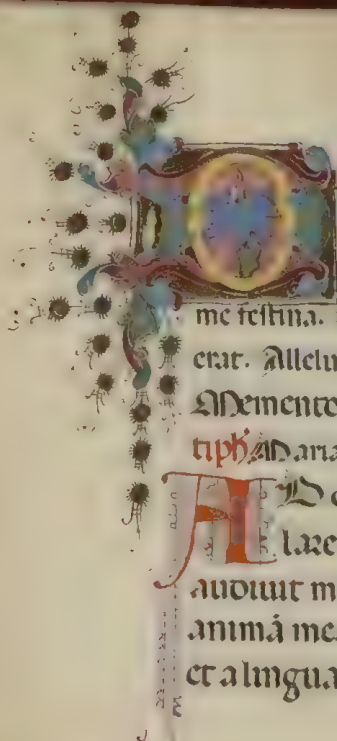 D
me festina.
erat. Allelu
Memento
tiph Maria
A D
lare
audiuit m
animā me
et a lingua